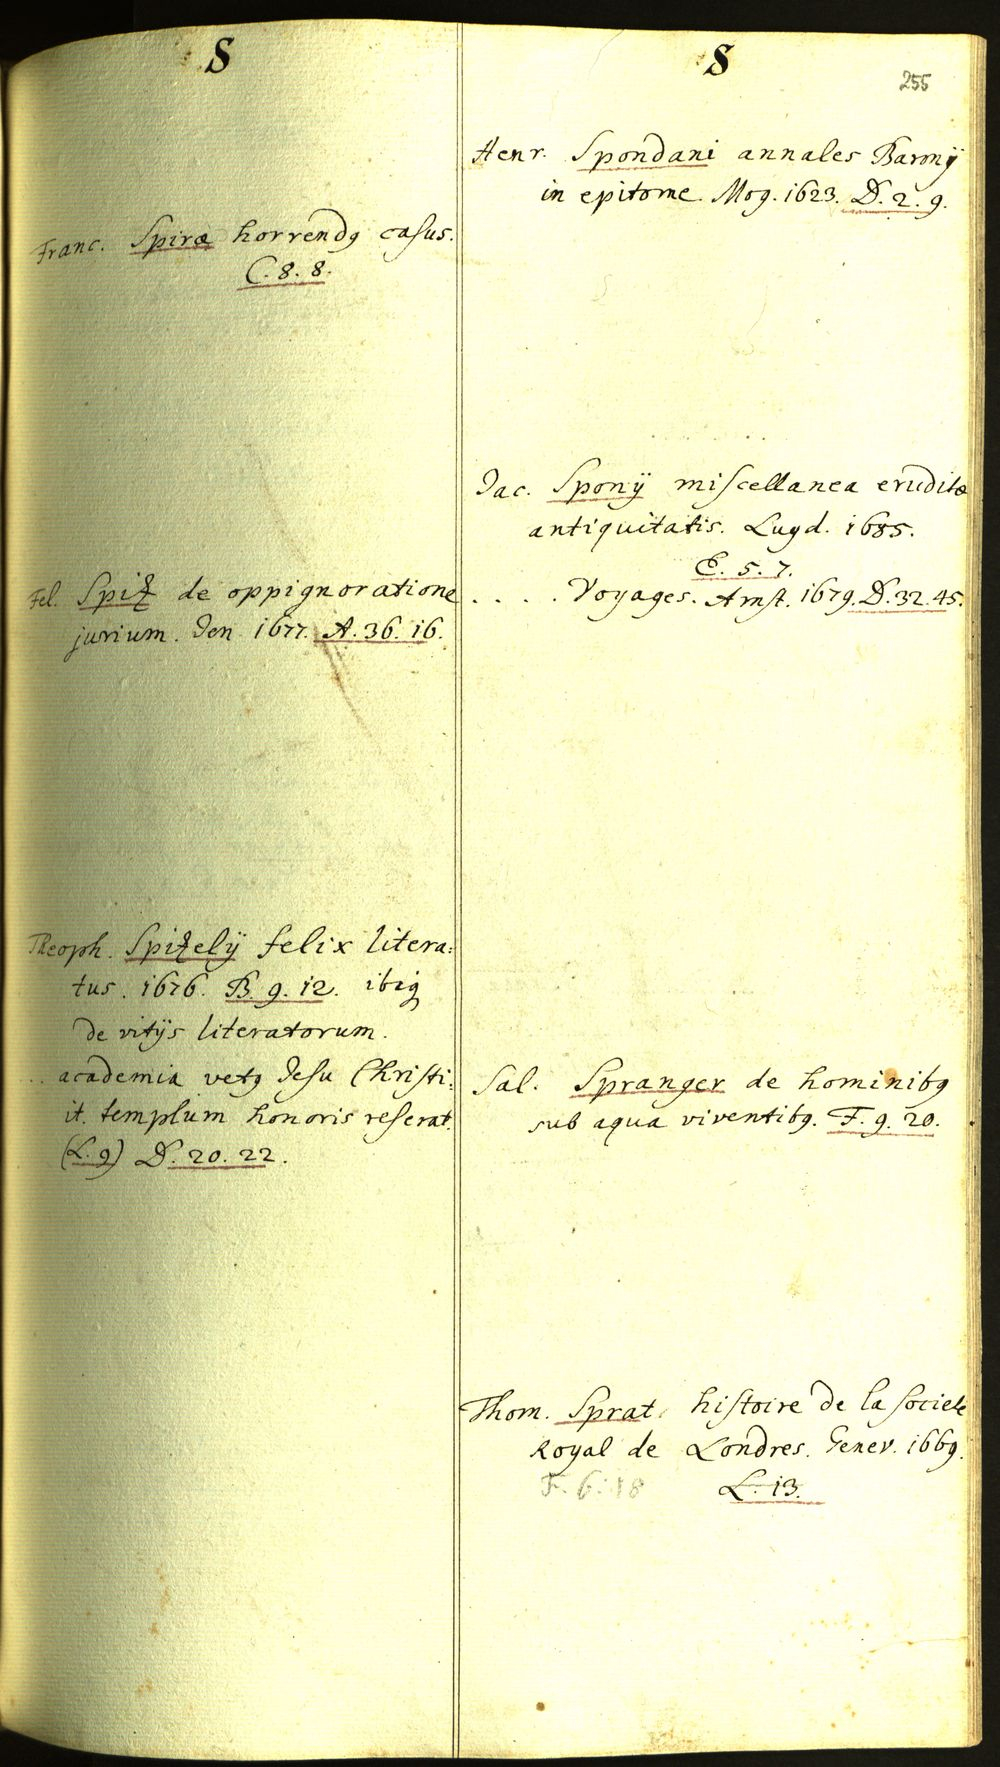 S
Franc. Spiræ horrendꝰ casus.
C. 8. 8.
Fel. Spitz de oppignoratione
jurium. Jen 1677. A. 36. 16.
Theoph. Spitzelij felix litera:
tus. 1676. B. 9. 12. ibiꝗ
de vitijs literatorum.
.. academia vetꝰ Jesu Christi:
it. templum honoris reserat.
(L. 9) D. 20. 22.
S
255
Henr. Spondani annales Baronij
in epitome. Mog. 1623. D. 2. 9.
Jac. Sponij miscellanea eruditæ
antiquitatis. Lugd. 1685.
E. 5. 7.
. . . . Voyages. Amst. 1679. D. 32. 45.
Sal. Spranger de hominibꝰ
sub aqua viventibꝰ. F. 9. 20.
Thom. Sprat histoire de la societe
Royal de Londres. Genev. 1669.
F. 6. 18 L. 13.